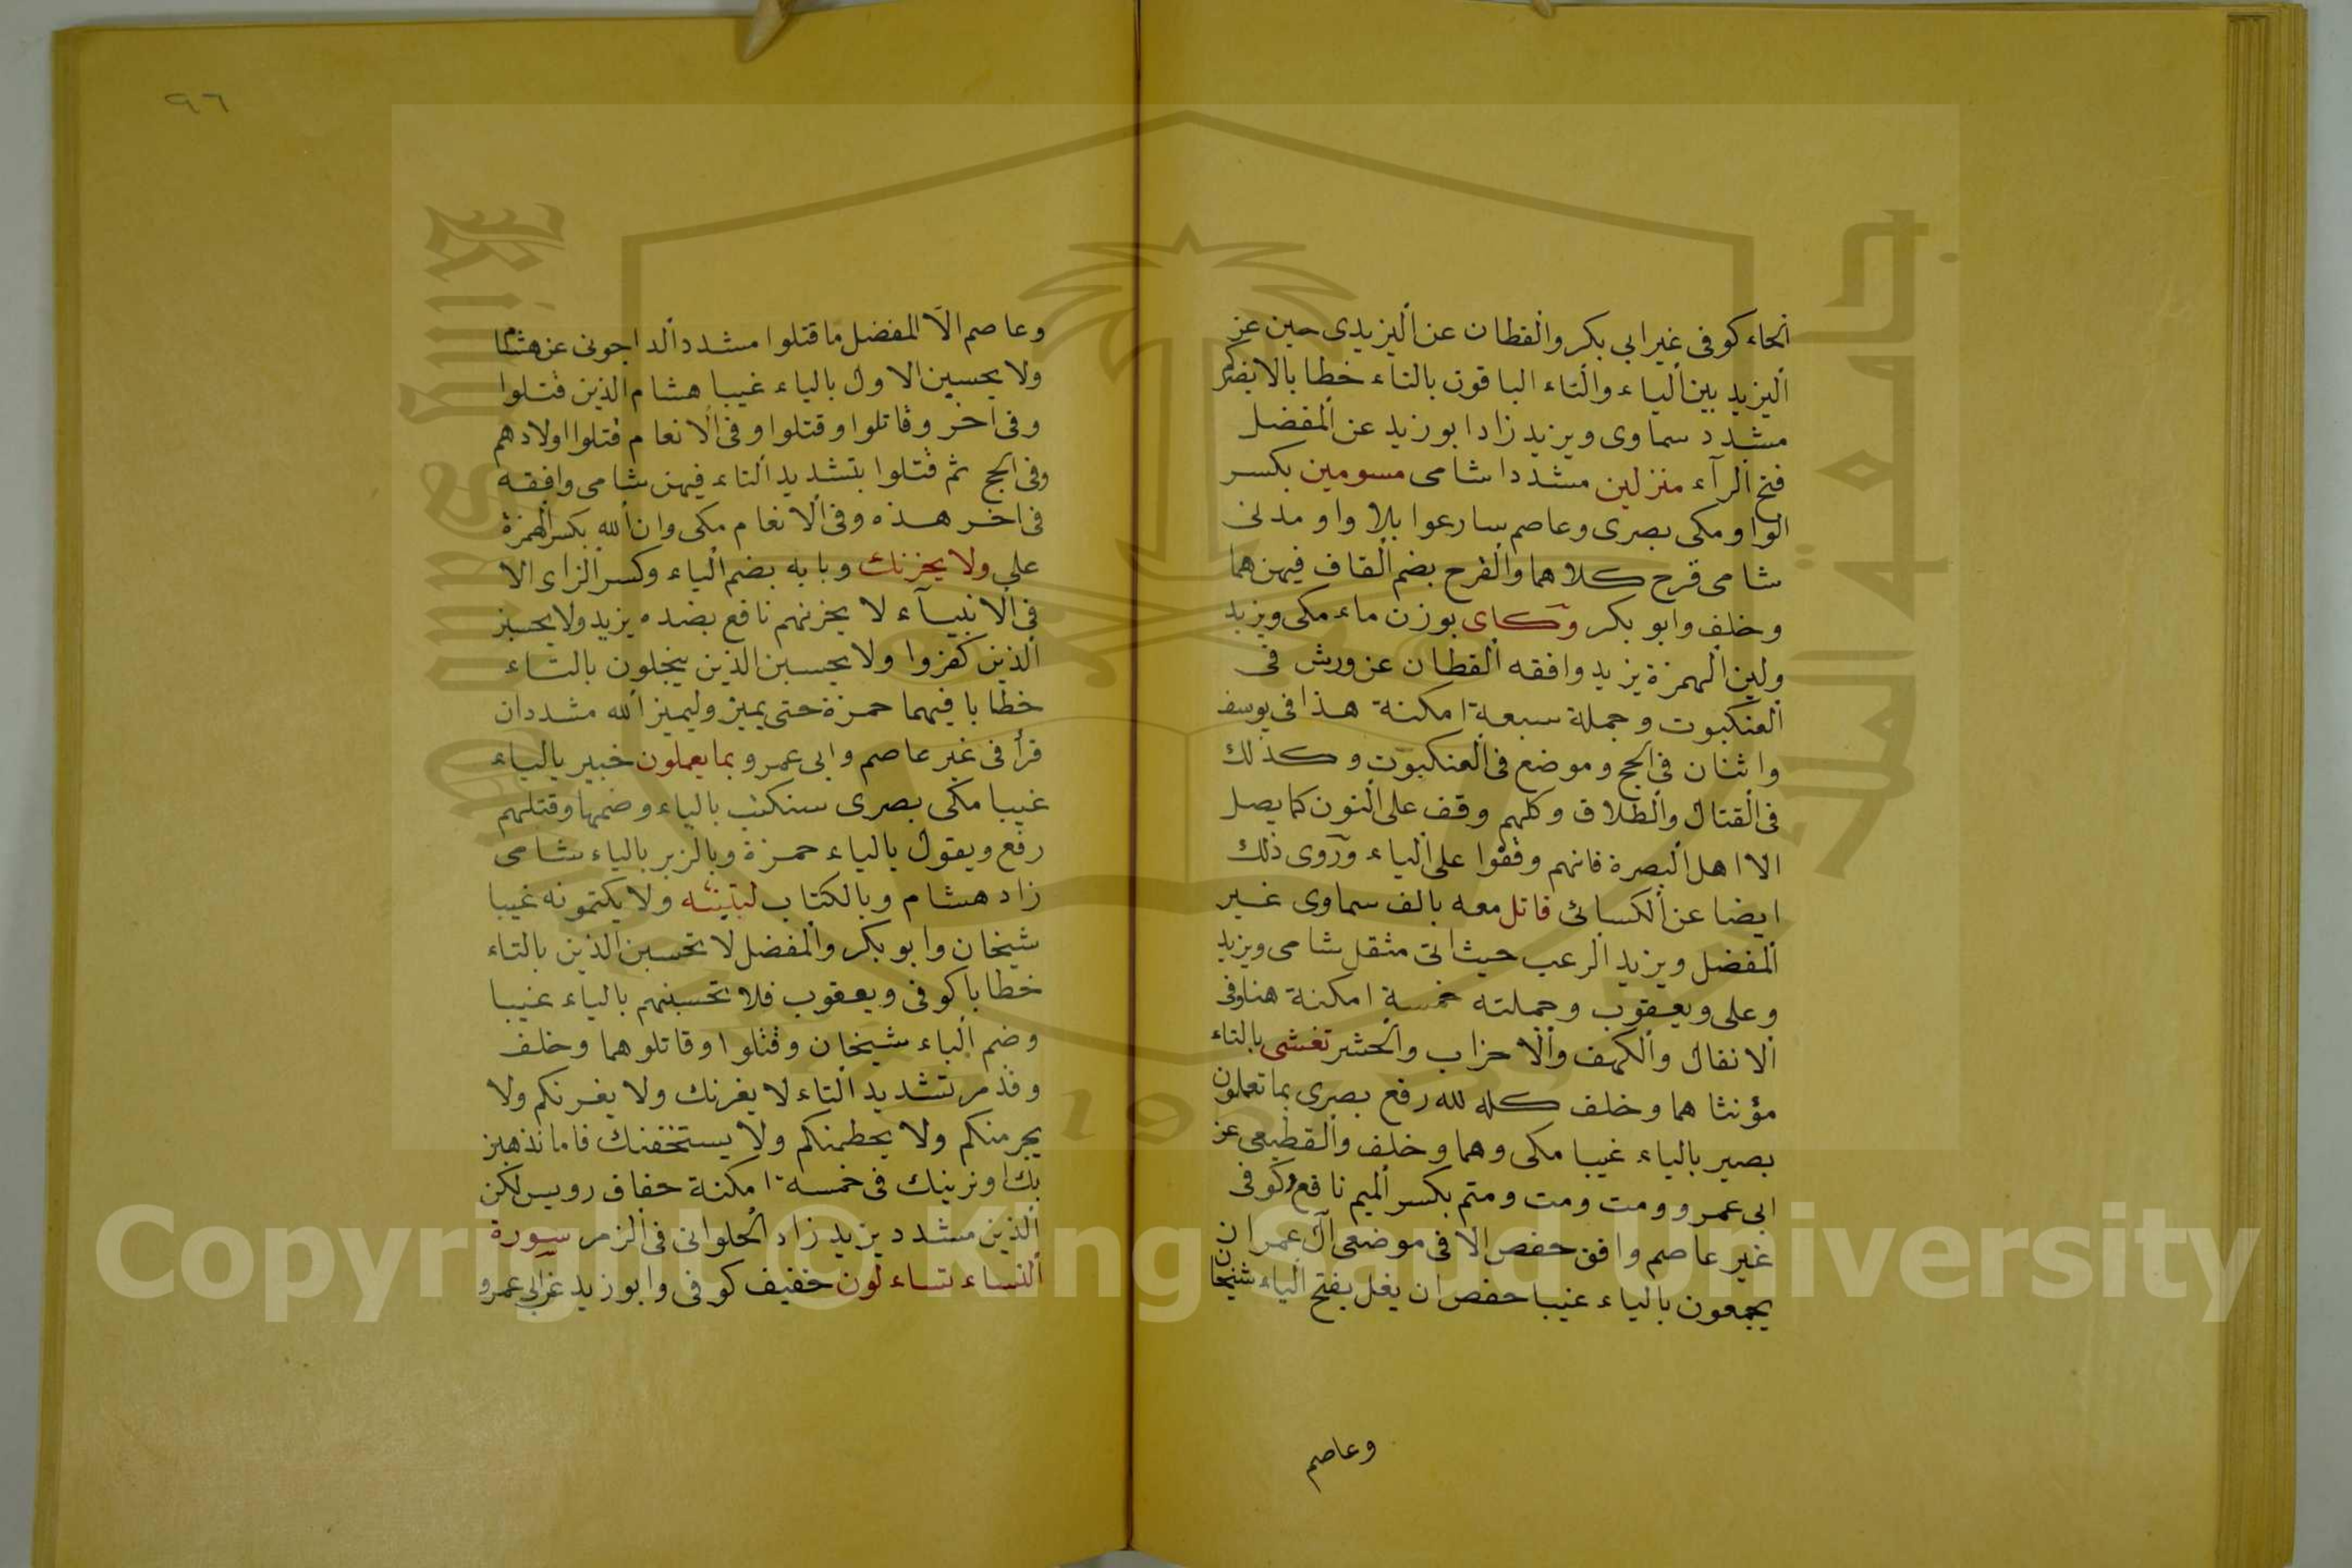 الحاء كوفى غير ابي بكر والقطان عن اليزيدى حين عن
اليزيد بين الياء والتاء الباقون بالتاء خطابا لا يضركم
مشدد سماوى ويزيد زاد ابو زيد عن المفضل
فتح الرآء منزلين مشددا شامى مسومين بكسر
الواو مكى بصرى وعاصم سارعوا بلا واو مدنى
شامى قرح كلاهما والقرح بضم القاف فيهن هما
وخلف وابو بكر وكاى بوزن ماء مكى ويزيد
ولين الهمزة يزيد وافقه القطان عن ورش فى
العنكبوت وجملة سبعة امكنة هذا فى يوسف
واثنان فى الحج وموضع فى العنكبوت وكذلك
فى القتال والطلاق وكلهم وقف على النون كما يصل
الا اهل البصرة فانهم وقفوا على الياء وروى ذلك
ايضا عن الكسائى قاتل معه بالف سماوى غير
المفضل ويزيد الرعب حيث اتى مثقل شامى ويزيد
وعلى ويعقوب وجملته خمسة امكنة هنا وفى
الانفال والكهف والاحزاب والحشر تغشى بالتاء
مؤنثا هما وخلف كله لله رفع بصرى بما تعملون
بصير بالياء غيبا مكى وهما وخلف والقطيعى عن
ابى عمرو ومت ومت ومتم بكسر الميم نافع وكوفى
غير عاصم وافق حفص الا فى موضعى آل عمران
يجمعون بالياء غيبا حفص ان يغل بفتح الياء شيخان
وعاصم
٩٦
وعاصم الا المفضل ما قتلوا مشدد الداجونى عن هشام
ولا يحسبن الاول بالياء غيبا هشام الذين قتلوا
وفى اخر وقاتلوا وقتلوا وفى الانعام قتلوا اولادهم
وفى الحج ثم قتلوا بتشديد التاء فيهن شامى وافقه
فى اخر هذه وفى الانعام مكى وان الله بكسر الهمزة
على ولا يحزنك وبابه بضم الياء وكسر الزاى الا
فى الانبيآء لا يحزنهم نافع بضده يزيد ولا يحسبن
الذين كفروا ولا يحسبن الذين يبخلون بالتاء
خطابا فيهما حمزة حتى يميز وليميز الله مشددان
قرأ فى غير عاصم وابى عمرو بما يعملون خبير بالياء
غيبا مكى بصرى سنكتب بالياء وضمها وقتلهم
رفع ويقول بالياء حمزة وبالزبر بالياء شامى
زاد هشام وبالكتاب لتبيننه ولا يكتمونه غيبا
شيخان وابو بكر والمفضل لا تحسبن الذين بالتاء
خطابا كوفى ويعقوب فلا تحسبنهم بالياء غيبا
وضم الباء شيخان وقتلوا وقاتلوا هما وخلف
وقد مر تشديد التاء لا يغرنك ولا يغرنكم ولا
يجرمنكم ولا يحطمنكم ولا يستخفنك فاما نذهبن
بك او نرينك فى خمسة امكنة خفاف رويس لكن
الذين مشدد يزيد زاد الحلوانى فى الزمر سورة
النساء تساءلون خفيف كوفى وابو زيد عن ابى عمرو
Copyright © King Saud University